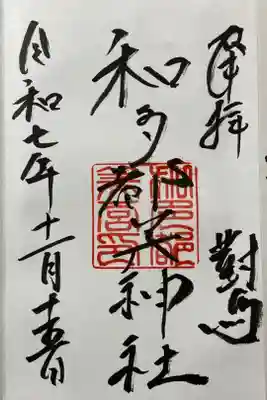 奉拝
對馬
和多都美神社
令和七年十一月十五日